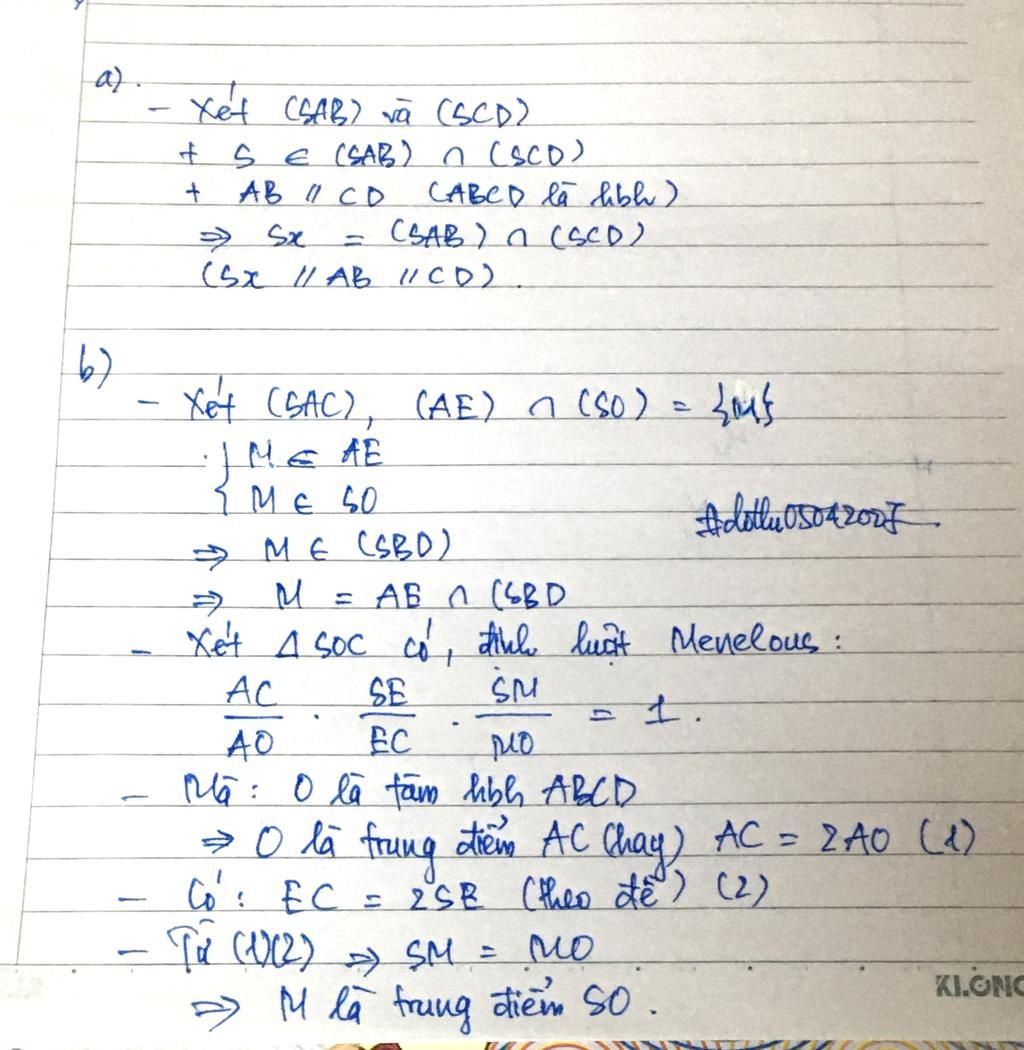 a).
- Xét (SAB) và (SCD)
+ S ∈ (SAB) ∩ (SCD)
+ AB // CD (ABCD là hbh)
⇒ Sx = (SAB) ∩ (SCD)
(Sx // AB // CD).
b)
- Xét (SAC), (AE) ∩ (SO) = {M}
{ M ∈ AE
M ∈ SO
#dothu05042005
⇒ M ∈ (SBD)
⇒ M = AE ∩ (SBD
- Xét Δ SOC có, định luật Menelous :
AC/AO . SE/EC . SM/MO = 1.
- Mà : O là tâm hbh ABCD
⇒ O là trung điểm AC (hay) AC = 2AO (1)
- Có : EC = 2SE (theo đề) (2)
- Từ (1)(2) ⇒ SM = MO
⇒ M là trung điểm SO .
KLONG